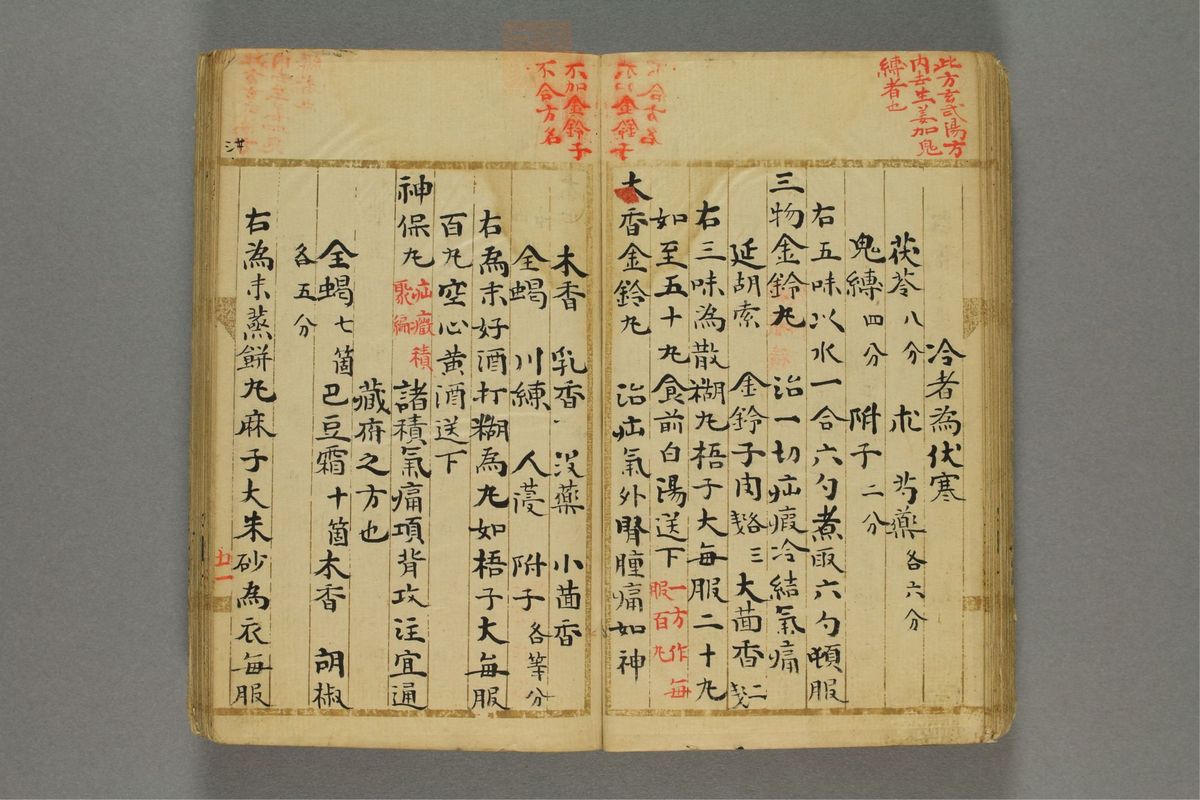 此方玄武湯方
内去生姜加鬼
縛者也
冷者為伏寒
茯苓八分 朮 芍藥各六分
鬼縛四分 附子二分
右五味以水一合六勺煮取六勺頓服
三物金鈴丸 治一切疝瘕冷結氣痛
延胡索 金鈴子肉 三 大茴香 二
右三味為散糊丸梧子大每服二十丸
如至五十丸食前白湯送下
一方作每
服百丸
木香金鈴丸 治疝氣外腎腫痛如神
不加金鈴子
不合方名
木香 乳香 没藥 小茴香
全蝎 川練 人葠 附子各等分
右為末好酒打糊為丸如梧子大每服
百丸空心黄酒送下
神保丸
疝癥積
聚編
諸積氣痛項背攻注宜通
藏府之方也
全蝎七箇 巴豆霜十箇 木香 胡椒
各五分
右為末蒸餅丸麻子大朱砂為衣每服
五一